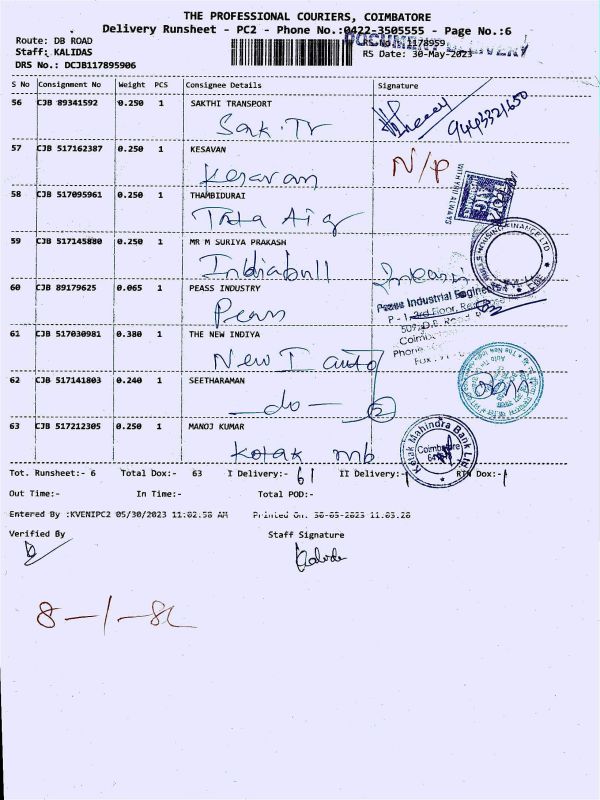 THE PROFESSIONAL COURIERS, COIMBATORE
Delivery Runsheet - PC2 - Phone No.:0422-3505555 - Page No.:6
DOCUMENT DELIVERY
Route: DB ROAD
RS No.: 1178959
Staff: KALIDAS
RS Date: 30-May-2023
DRS No.: DCJB117895906
S No Consignment No Weight PCS Consignee Details Signature
56 CJB 89341592 0.250 1 SAKTHI TRANSPORT
Sak. Tr
9443321650
57 CJB 517162387 0.250 1 KESAVAN
Kesavan N/P
WITH YOU ALWAYS
58 CJB 517095961 0.250 1 THAMBIDURAI
Tata Aig
59 CJB 517145880 0.250 1 MR M SURIYA PRAKASH
Indiabull
HOUSING FINANCE LTD
60 CJB 89179625 0.065 1 PEASS INDUSTRY
Peass
Peass Industrial Engineers
P - 1, 3rd Floor,
509, D.B. Road
Phone
Fax
61 CJB 517030981 0.380 1 THE NEW INDIYA
New I auto
62 CJB 517141803 0.240 1 SEETHARAMAN
—do— 2
63 CJB 517212305 0.250 1 MANOJ KUMAR
Kotak mb
Kotak Mahindra Bank Ltd.
Coimbatore
Tot. Runsheet:- 6 Total Dox:- 63 I Delivery:- 61 II Delivery:- 1 RTN Dox:- 1
Out Time:- In Time:- Total POD:-
Entered By :KVENIPC2 05/30/2023 11:02:58 AM Printed On: 30-05-2023 11.03.28
Verified By Staff Signature